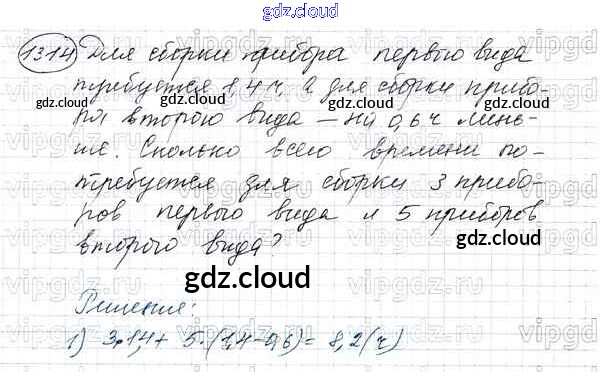 gdz.cloud
1314 Для сборки прибора первого вида
требуется 1,4 ч, а для сборки прибо-
gdz.cloud gdz.cloud gdz.cloud
ра второго вида — на 0,6 ч мень-
ше. Сколько всего времени по-
требуется для сборки 3 прибо-
ров первого вида и 5 приборов
второго вида?
gdz.cloud
Решение:
1) 3·1,4 + 5·(1,4-0,6) = 8,2 (ч)
gdz.cloud gdz.cloud